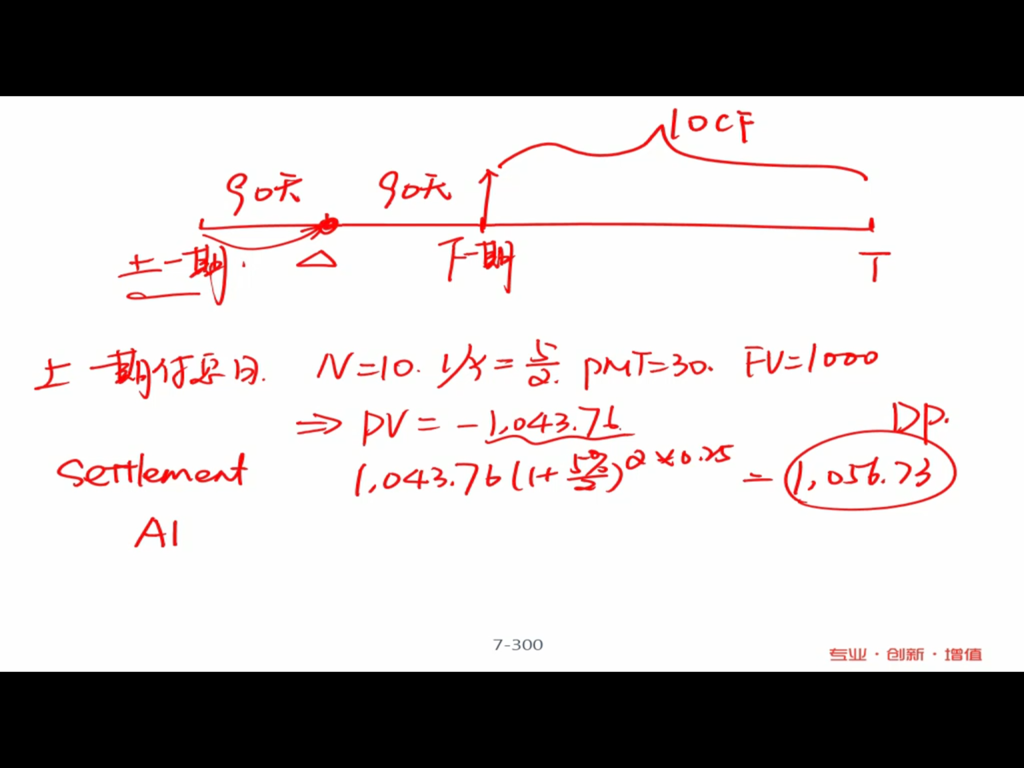 10CF
90天 90天
上一期. △ 下一期 T
上一期付息日. N=10. I/Y=5/2. PMT=30. FV=1000
⇒ PV = -1,043.76
DP.
Settlement 1,043.76(1+5%/2)^2×0.25 = 1,056.73
AI
7-300
专业·创新·增值